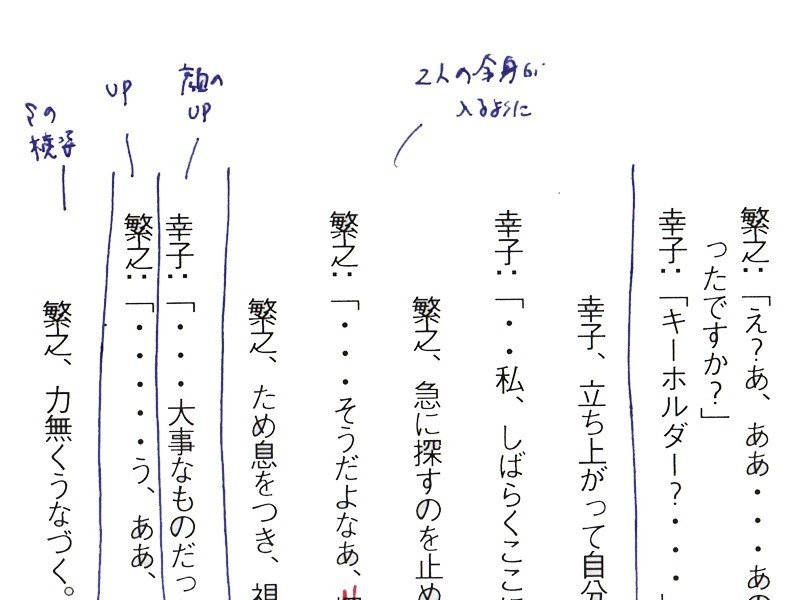 2人の全身が
入るように
顔の
UP
UP
その
様子
繁之:「え?あ、ああ・・・あの
ったですか?」
幸子:「キーホルダー?・・・」
幸子、立ち上がって自分
幸子:「・・私、しばらくここに
繁之、急に探すのを止め
繁之:「・・・そうだよなあ、
繁之、ため息をつき、視
幸子:「・・・大事なものだっ
繁之:「・・・・・・う、ああ、
繁之、力無くうなづく。